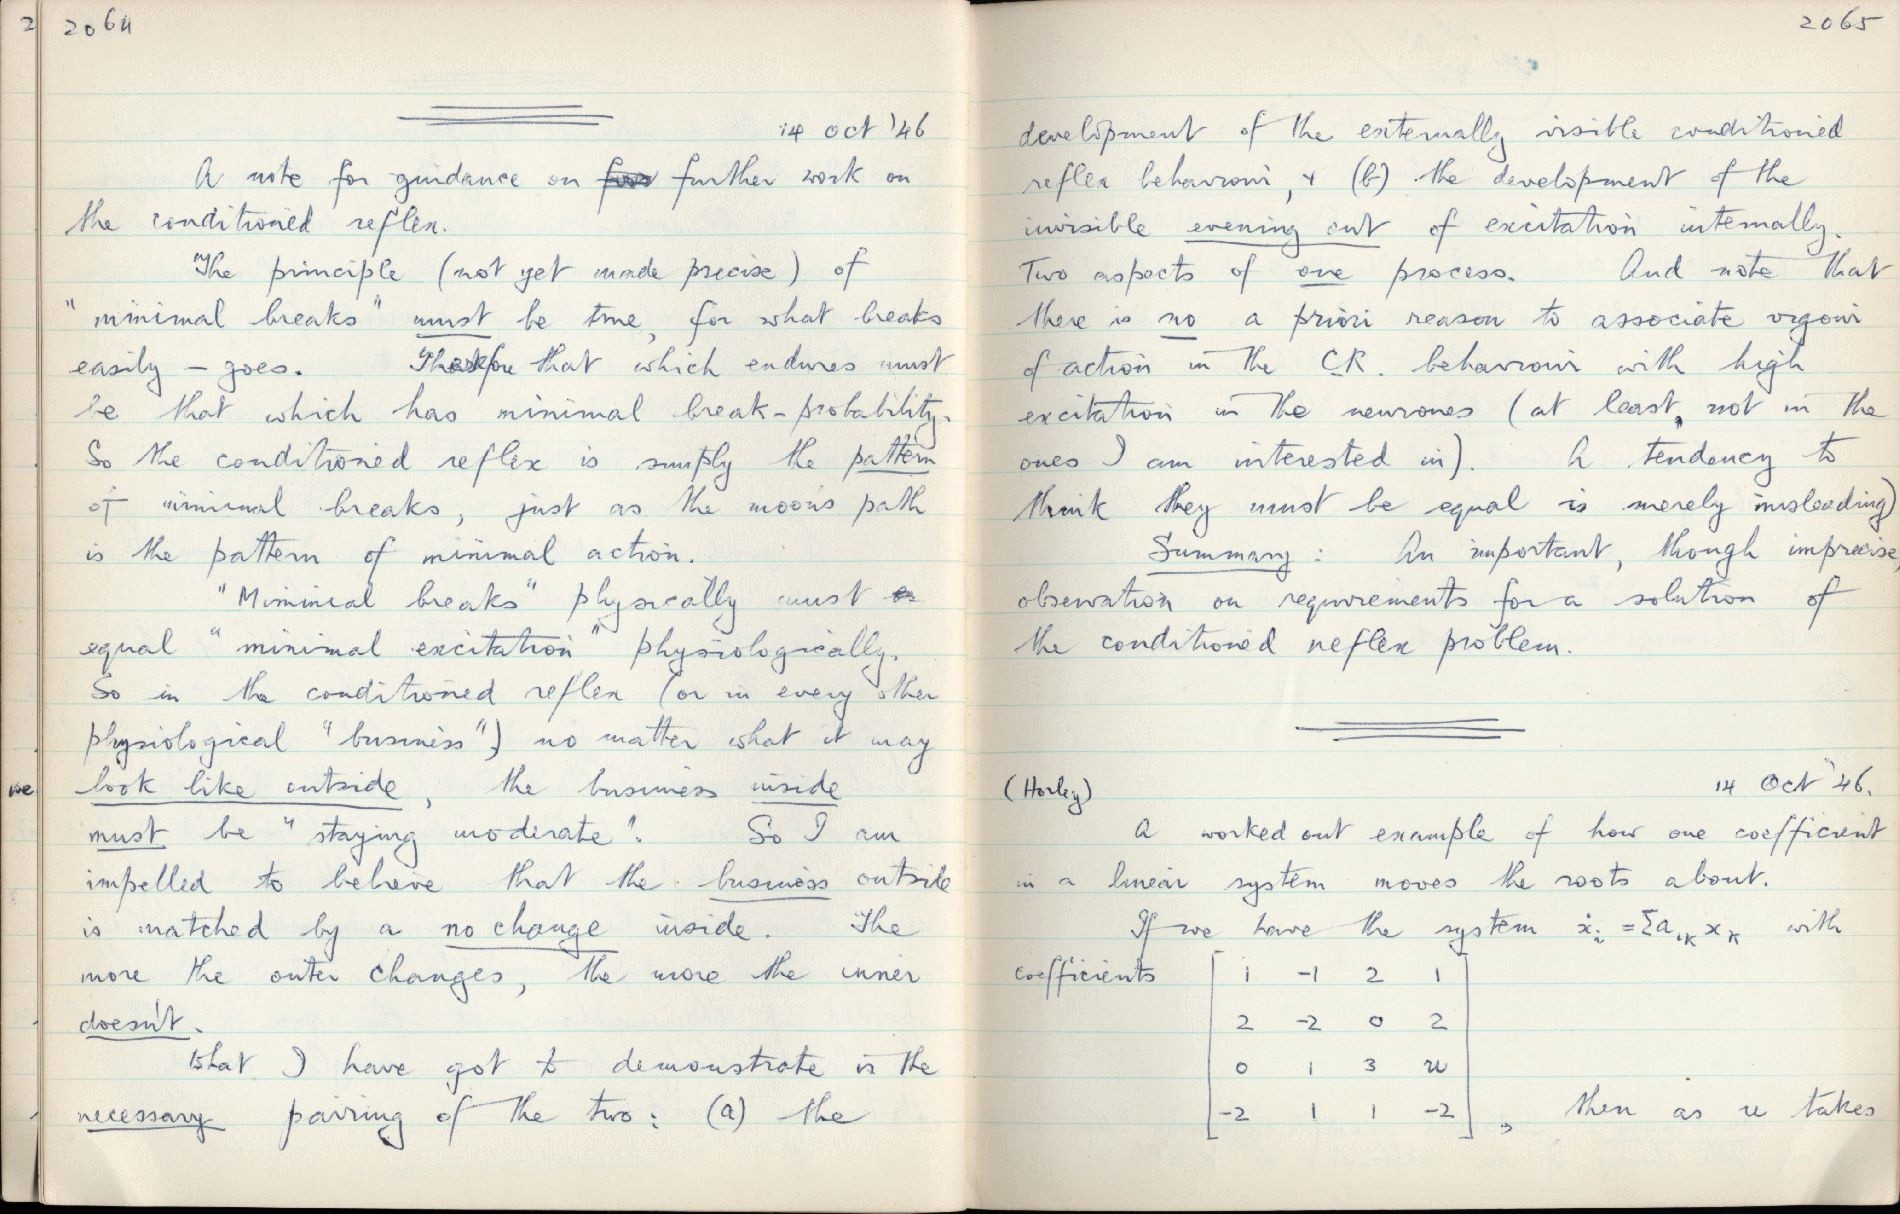 2064
14 Oct '46
A note for guidance on further work on
the conditioned reflex.
The principle (not yet made precise) of
"minimal breaks" must be true, for what breaks
easily – goes. Therefore that which endures must
be that which has minimal break-probability.
So the conditioned reflex is simply the pattern
of minimal breaks, just as the moon's path
is the pattern of minimal action.
"Minimal breaks" physically must
equal "minimal excitation" physiologically.
So in the conditioned reflex (or in every other
physiological "business") no matter what it may
look like outside, the business inside
must be "staying moderate". So I am
impelled to believe that the business outside
is matched by a no change inside. The
more the outer changes, the more the inner
doesn't.
What I have got to demonstrate is the
necessary pairing of the two: (a) the
2065
development of the externally visible conditioned
reflex behaviour, & (b) the development of the
invisible evening out of excitation internally.
Two aspects of one process. And note that
there is no a priori reason to associate vigour
of action in the C.R. behaviour with high
excitation in the neurones (at least, not in the
ones I am interested in). A tendency to
think they must be equal is merely misleading)
Summary: An important, though imprecise,
observation on requirements for a solution of
the conditioned reflex problem.
(Horley) 14 Oct '46.
A worked out example of how one coefficient
in a linear system moves the roots about.
If we have the system ẋᵢ = Σaᵢₖxₖ with
coefficients 1 -1 2 1
2 -2 0 2
0 1 3 u
-2 1 1 -2 , then as u takes